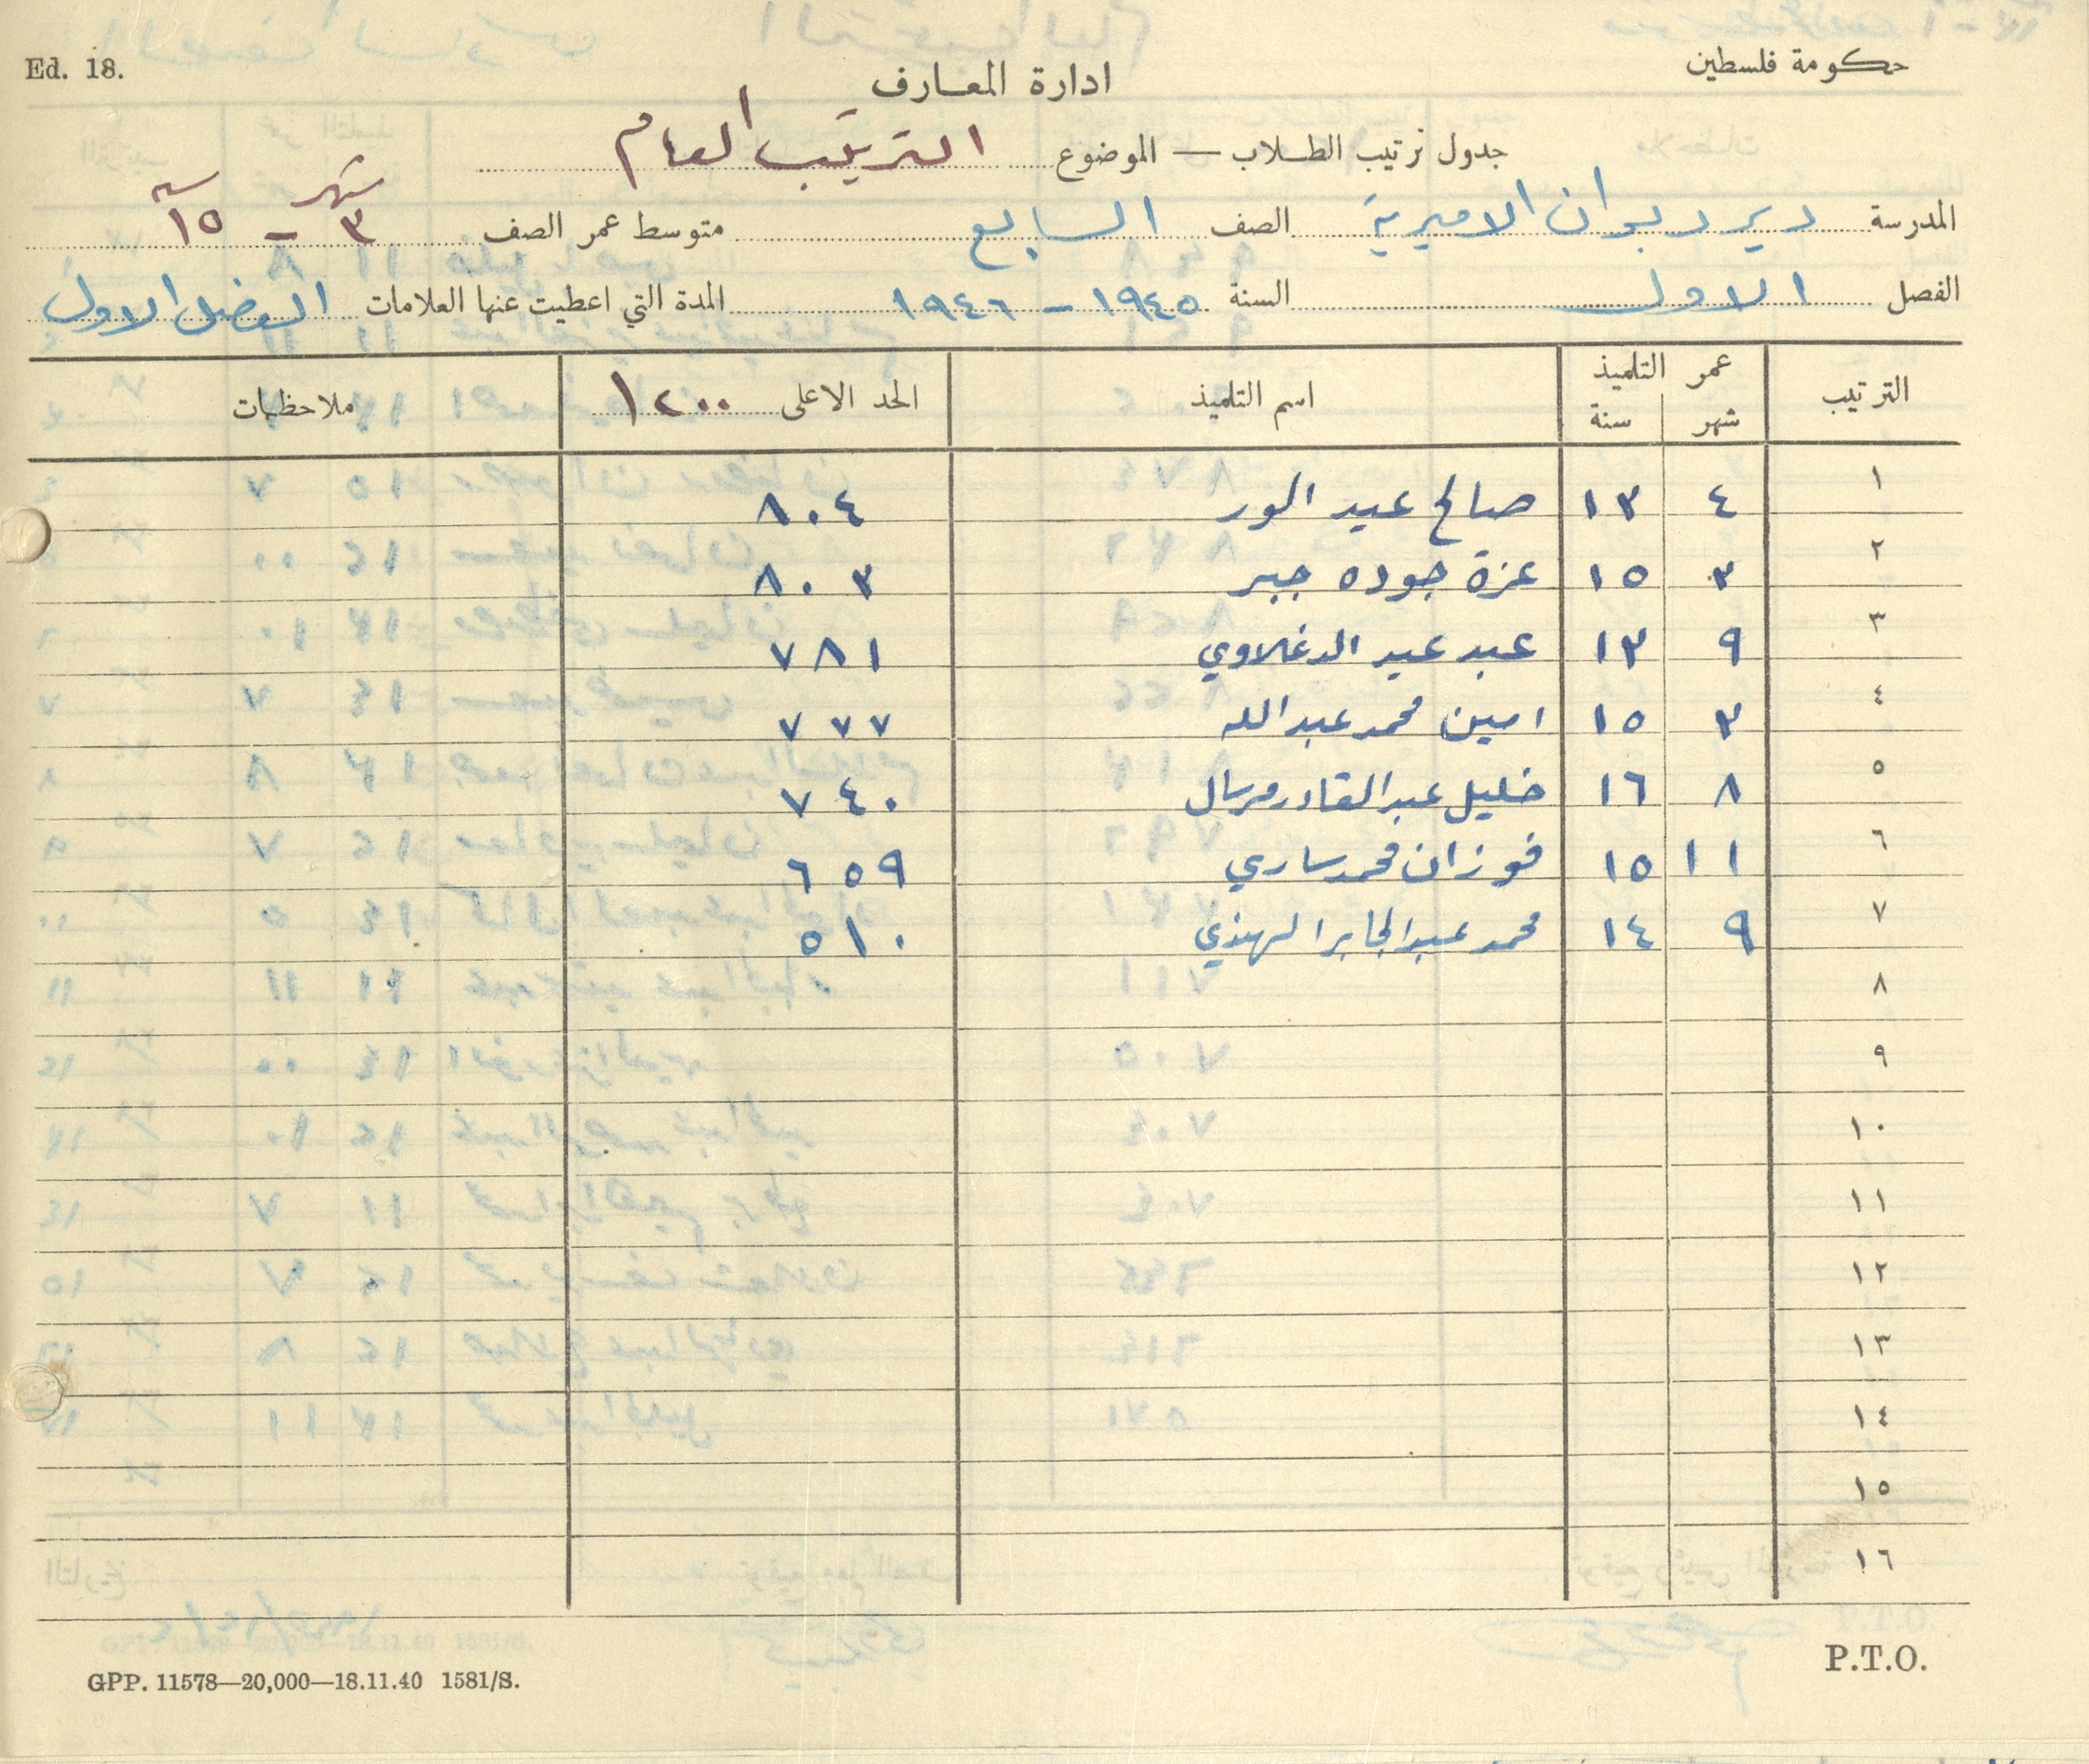 Ed. 18.
حكومة فلسطين
ادارة المعارف
جدول ترتيب الطلاب — الموضوع الترتيب العام
المدرسة دير ديوان الاميرية الصف السابع متوسط عمر الصف ٣ شهر - ١٥ سنه
الفصل الاول السنة ١٩٤٥ - ١٩٤٦ المدة التي اعطيت عنها العلامات الفصل الاول
الترتيب عمر التلميذ اسم التلميذ الحد الاعلى ١٢٠٠ ملاحظات
شهر سنة
١ ٤ ١٣ صالح عيد ٨٠٤
٢ ٣ ١٥ عزة جوده جبر ٨٠٣
٣ ٩ ١٣ عبد عيد الدغلاوي ٧٨١
٤ ٣ ١٥ امين محمد عبدالله ٧٧٧
٥ ٨ ١٦ خليل عبد القادر ٧٤٠
٦ ١١ ١٥ فوزان محمد ساري ٦٥٩
٧ ٩ ١٤ محمد عبد الجابر الهندي ٥١٠
٨
٩
١٠
١١
١٢
١٣
١٤
١٥
١٦
GPP. 11578—20,000—18.11.40 1581/S.
P.T.O.